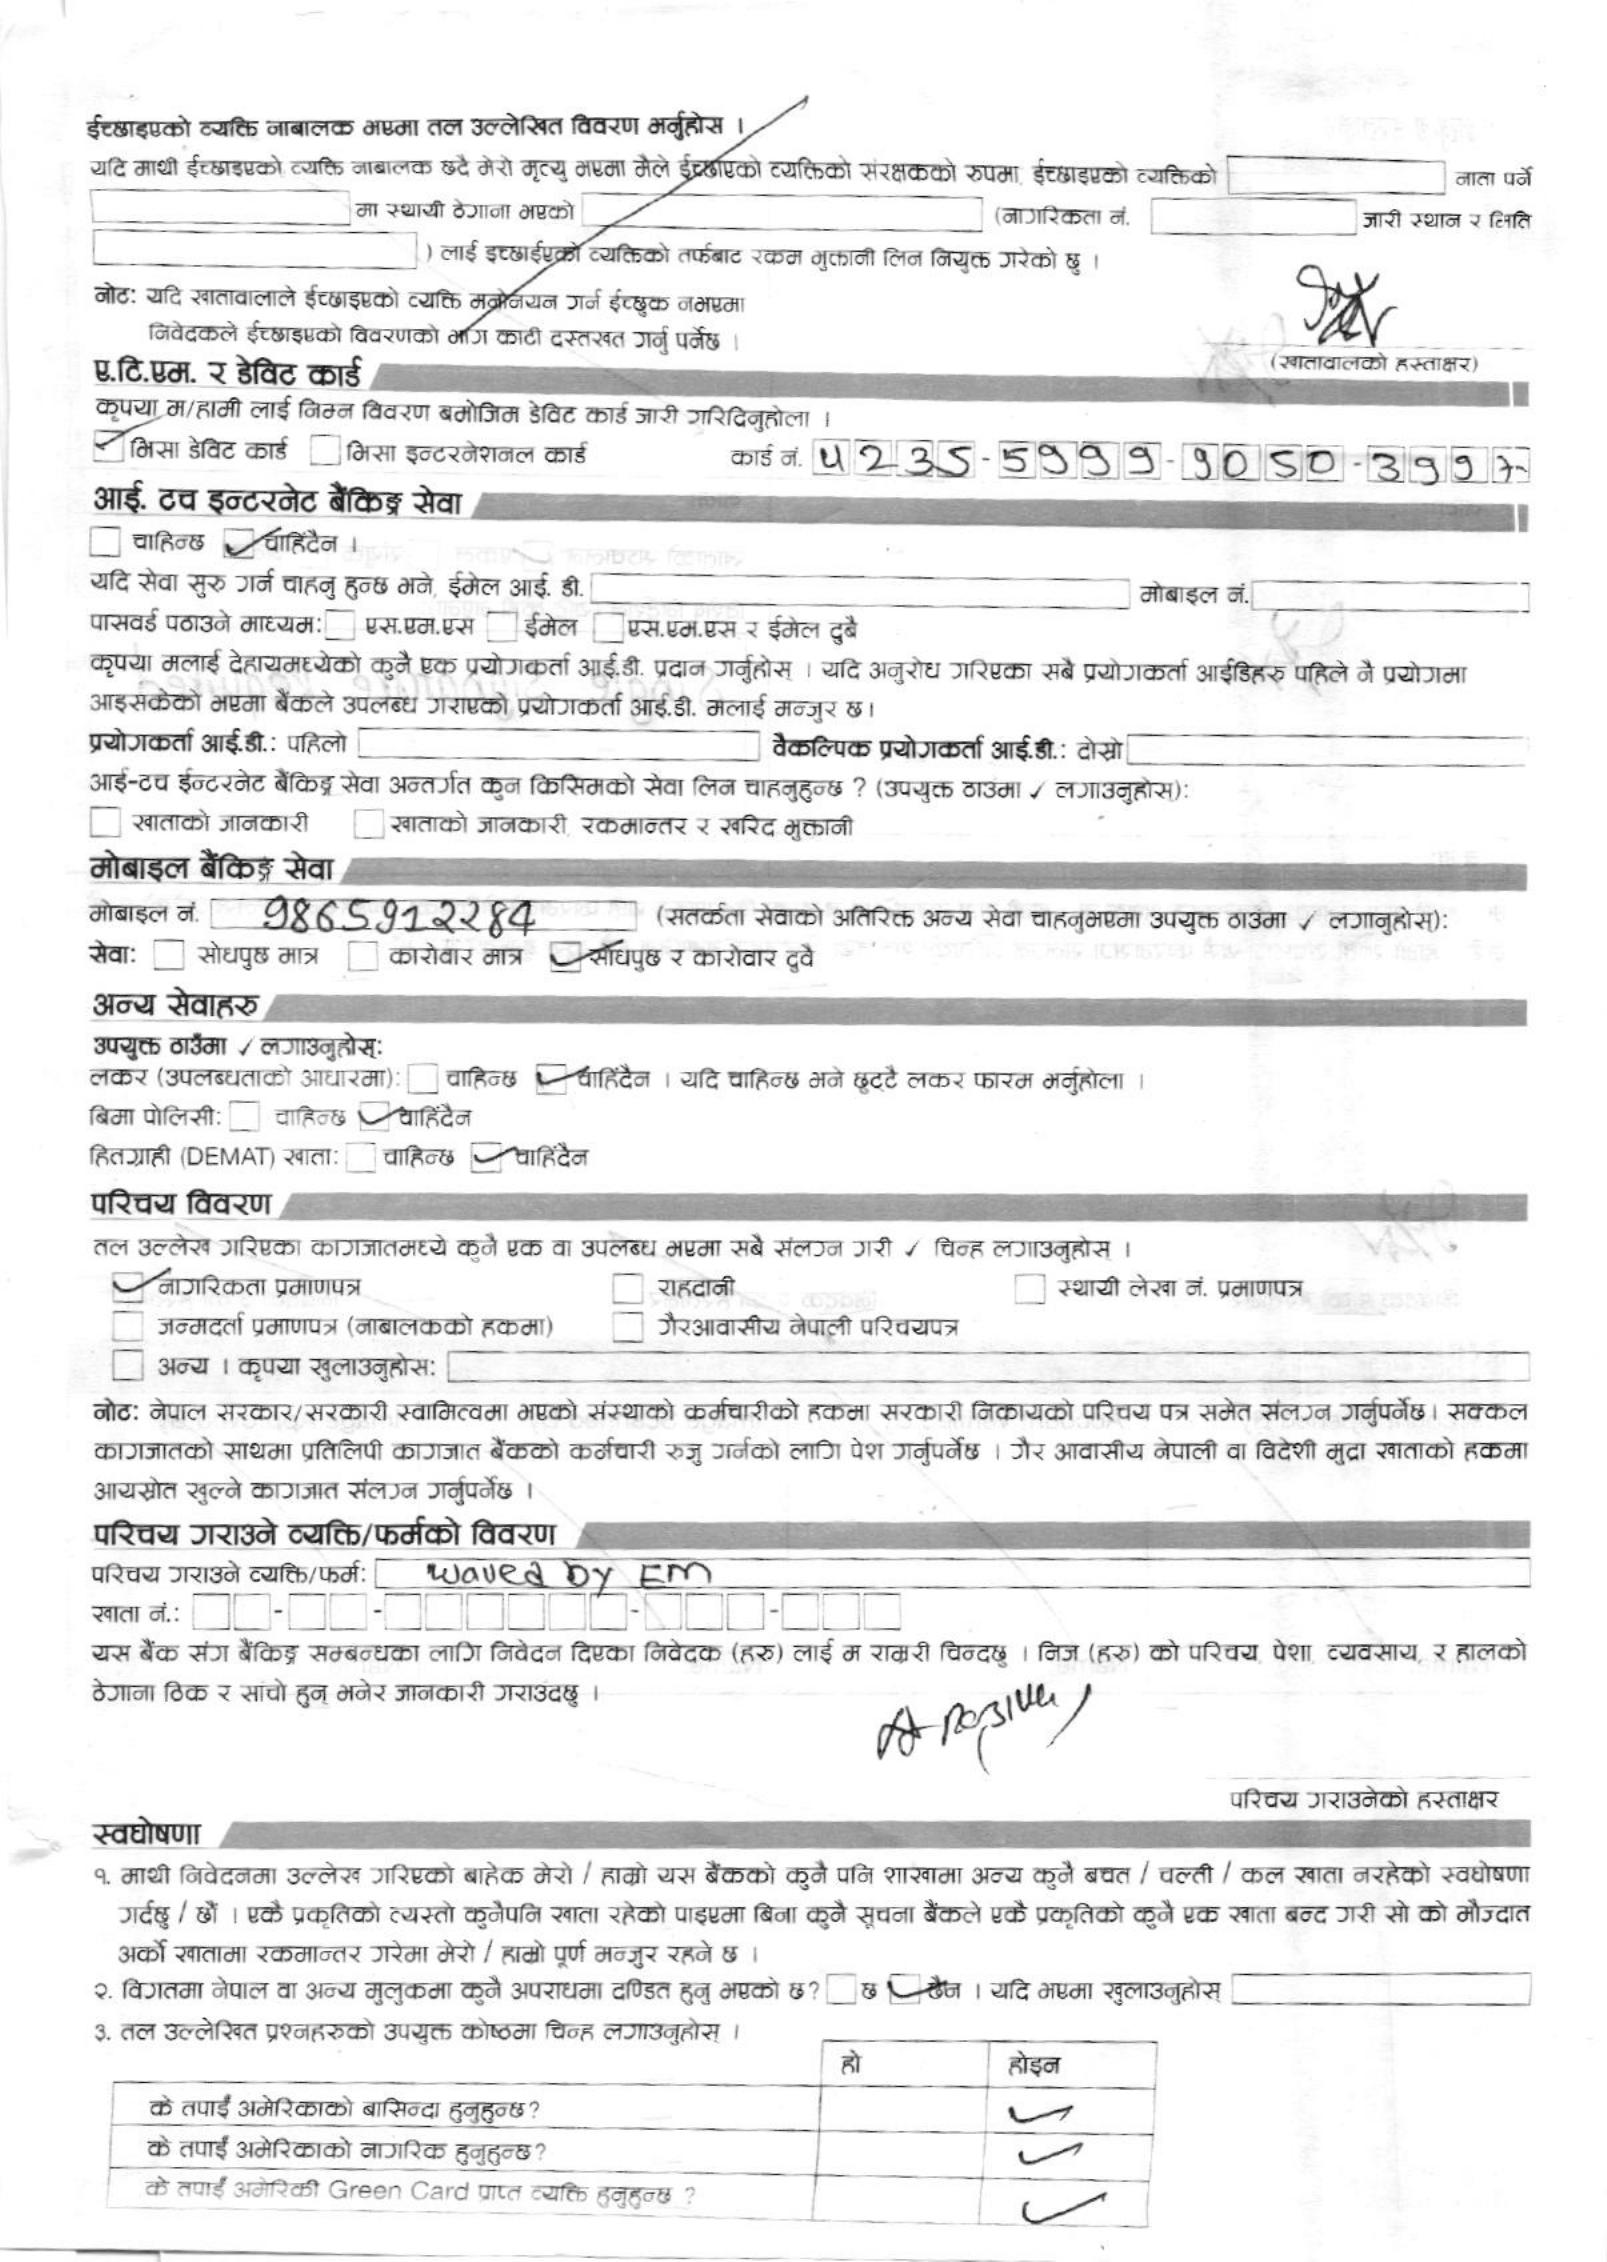 ईच्छाइएको व्यक्ति नाबालक भएमा तल उल्लेखित विवरण भर्नुहोस ।
यदि माथी ईच्छाइएको व्यक्ति नाबालक छदै मेरो मृत्यु भएमा मैले ईच्छाएको व्यक्तिको संरक्षकको रुपमा, ईच्छाइएको व्यक्तिको नाता पर्ने
मा स्थायी ठेगाना भएको (नागरिकता नं. जारी स्थान र मिति
) लाई इच्छाईएको व्यक्तिको तर्फबाट रकम भुक्तानी लिन नियुक्त गरेको छु ।
नोट: यदि खातावालाले ईच्छाइएको व्यक्ति मनोनयन गर्न ईच्छुक नभएमा
निवेदकले ईच्छाइएको विवरणको भाग काटी दस्तखत गर्नु पर्नेछ ।
(खातावालको हस्ताक्षर)
ए.टि.एम. र डेविट कार्ड
कृपया म/हामी लाई निम्न विवरण बमोजिम डेविट कार्ड जारी गरिदिनुहोला ।
भिसा डेविट कार्ड भिसा इन्टरनेशनल कार्ड कार्ड नं. 4235-5999-9050-3997
आई. टच इन्टरनेट बैंकिङ्ग सेवा
चाहिन्छ चाहिंदैन ।
यदि सेवा सुरु गर्न चाहनु हुन्छ भने, ईमेल आई. डी. मोबाइल नं.
पासवर्ड पठाउने माध्यम: एस.एम.एस ईमेल एस.एम.एस र ईमेल दुबै
कृपया मलाई देहायमध्येको कुनै एक प्रयोगकर्ता आई.डी. प्रदान गर्नुहोस् । यदि अनुरोध गरिएका सबै प्रयोगकर्ता आईडिहरु पहिले नै प्रयोगमा
आइसकेको भएमा बैंकले उपलब्ध गराएको प्रयोगकर्ता आई.डी. मलाई मन्जुर छ।
प्रयोगकर्ता आई.डी.: पहिलो वैकल्पिक प्रयोगकर्ता आई.डी.: दोस्रो
आई-टच ईन्टरनेट बैंकिङ्ग सेवा अन्तर्गत कुन किसिमको सेवा लिन चाहनुहुन्छ ? (उपयुक्त ठाउंमा ✓ लगाउनुहोस्):
खाताको जानकारी खाताको जानकारी, रकमान्तर र खरिद भुक्तानी
मोबाइल बैंकिङ्ग सेवा
मोबाइल नं. 9865912284 (सतर्कता सेवाको अतिरिक्त अन्य सेवा चाहनुभएमा उपयुक्त ठाउंमा ✓ लगानुहोस्):
सेवा: सोधपुछ मात्र कारोवार मात्र सोधपुछ र कारोवार दुवै
अन्य सेवाहरु
उपयुक्त ठाउँमा ✓ लगाउनुहोस्:
लकर (उपलब्धताको आधारमा): चाहिन्छ चाहिंदैन । यदि चाहिन्छ भने छुट्टै लकर फारम भर्नुहोला ।
बिमा पोलिसी: चाहिन्छ चाहिंदैन
हितग्राही (DEMAT) खाता: चाहिन्छ चाहिंदैन
परिचय विवरण
तल उल्लेख गरिएका कागजातमध्ये कुनै एक वा उपलब्ध भएमा सबै संलग्न गरी ✓ चिन्ह लगाउनुहोस् ।
नागरिकता प्रमाणपत्र राहदानी स्थायी लेखा नं. प्रमाणपत्र
जन्मदर्ता प्रमाणपत्र (नाबालकको हकमा) गैरआवासीय नेपाली परिचयपत्र
अन्य । कृपया खुलाउनुहोस:
नोट: नेपाल सरकार/सरकारी स्वामित्वमा भएको संस्थाको कर्मचारीको हकमा सरकारी निकायको परिचय पत्र समेत संलग्न गर्नुपर्नेछ। सक्कल
कागजातको साथमा प्रतिलिपी कागजात बैंकको कर्मचारी रुजु गर्नको लागि पेश गर्नुपर्नेछ । गैर आवासीय नेपाली वा विदेशी मुद्रा खाताको हकमा
आयस्रोत खुल्ने कागजात संलग्न गर्नुपर्नेछ ।
परिचय गराउने व्यक्ति/फर्मको विवरण
परिचय गराउने व्यक्ति/फर्म: waved by EM
खाता नं.:
यस बैंक संग बैंकिङ्ग सम्बन्धका लागि निवेदन दिएका निवेदक (हरु) लाई म राम्ररी चिन्दछु । निज (हरु) को परिचय, पेशा, व्यवसाय, र हालको
ठेगाना ठिक र सांचो हुन् भनेर जानकारी गराउंदछु ।
परिचय गराउनेको हस्ताक्षर
स्वघोषणा
१. माथी निवेदनमा उल्लेख गरिएको बाहेक मेरो / हाम्रो यस बैंकको कुनै पनि शाखामा अन्य कुनै बचत / चल्ती / कल खाता नरहेको स्वघोषणा
गर्दछु / छौं । एकै प्रकृतिको त्यस्तो कुनैपनि खाता रहेको पाइएमा बिना कुनै सूचना बैंकले एकै प्रकृतिको कुनै एक खाता बन्द गरी सो को मौज्दात
अर्को खातामा रकमान्तर गरेमा मेरो / हाम्रो पूर्ण मन्जुर रहने छ ।
२. विगतमा नेपाल वा अन्य मुलुकमा कुनै अपराधमा दण्डित हुनु भएको छ? छ छैन । यदि भएमा खुलाउनुहोस्
३. तल उल्लेखित प्रश्नहरुको उपयुक्त कोष्ठमा चिन्ह लगाउनुहोस् ।
हो होइन
के तपाईं अमेरिकाको बासिन्दा हुनुहुन्छ? ✓
के तपाईं अमेरिकाको नागरिक हुनुहुन्छ? ✓
के तपाईं अमेरिकी Green Card प्राप्त व्यक्ति हुनुहुन्छ ? ✓